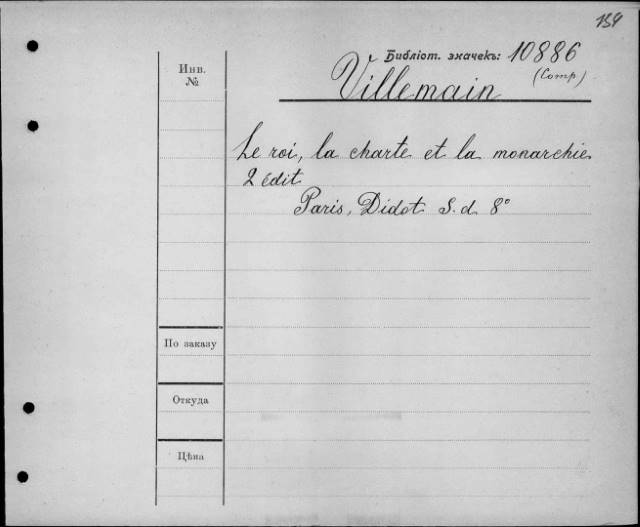 154
Библіот. значекъ: 10886
(Comp)
Villemain
Инв.
№
Le roi, la charte et la monarchie
2 édit
Paris, Didot S. d 8°
По заказу
Откуда
Цѣна